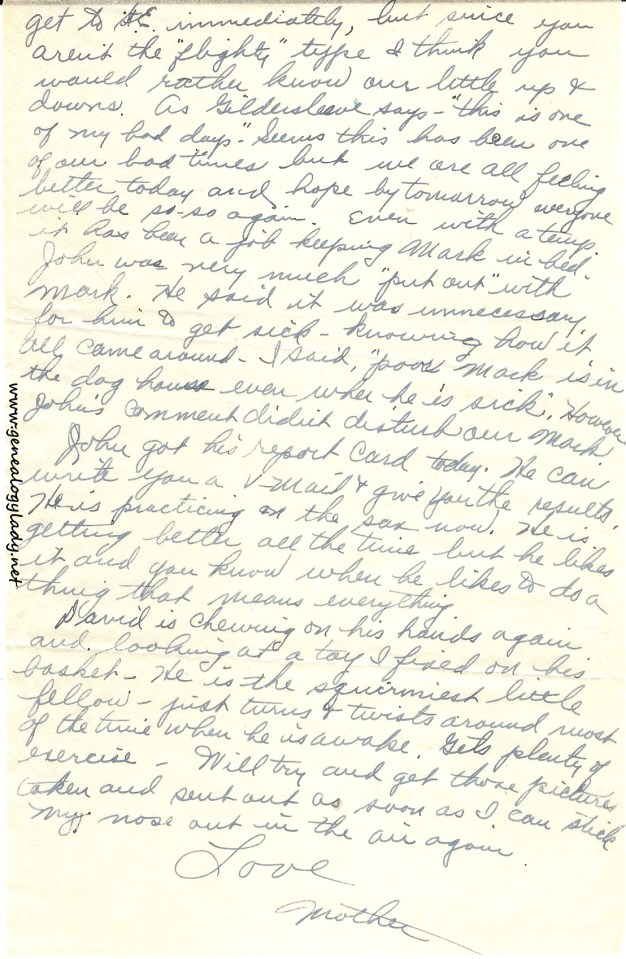 get to J.E. immediately, but since you
aren't the "flighty" type I think you
would rather know our little up &
downs. As Gildersleeve says - "this is one
of my bad days." Seems this has been one
of our bad times but we are all feeling
better today and hope by tomorrow everyone
will be so-so again. Even with a temp.
it has been a job keeping Mark in bed.
John was very much "put out" with
Mark. He said it was unnecessary
for him to get sick - knowing how it
all came around - I said, "poor Mark is in
the dog house even when he is sick". However
John's comment didn't disturb our Mark
John got his report card today. He can
write you a V-Mail & give you the results.
He is practicing on the sax now. He is
getting better all the time but he likes
it and you know when he likes to do a
thing that means everything.
David is chewing on his hands again
and looking at a toy I fixed on his
basket - He is the squirmiest little
fellow - just turns & twists around most
of the time when he is awake. Gets plenty of
exercise - Will try and get those pictures
taken and sent out as soon as I can stick
my nose out in the air again.
Love
Mother
www.genealogylady.net